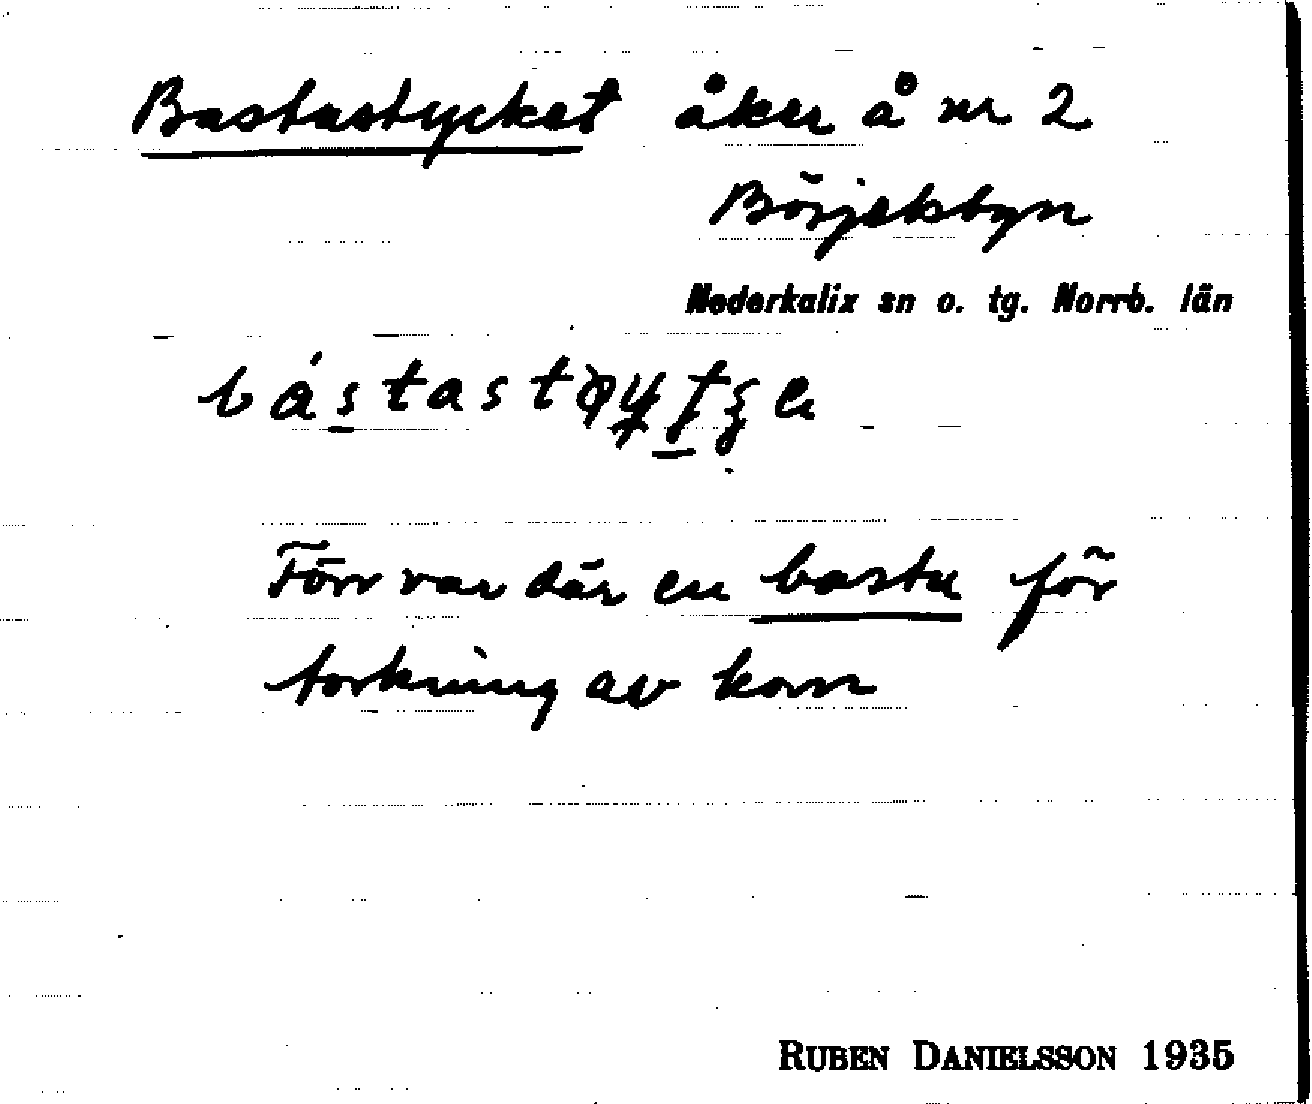 Bastastycket åker å nr 2
Börjelsbyn
Nederkalix sn o. tg. Norrb. län
Förr var där en bastu för
torkning av korn
RUBEN DANIELSSON 1935